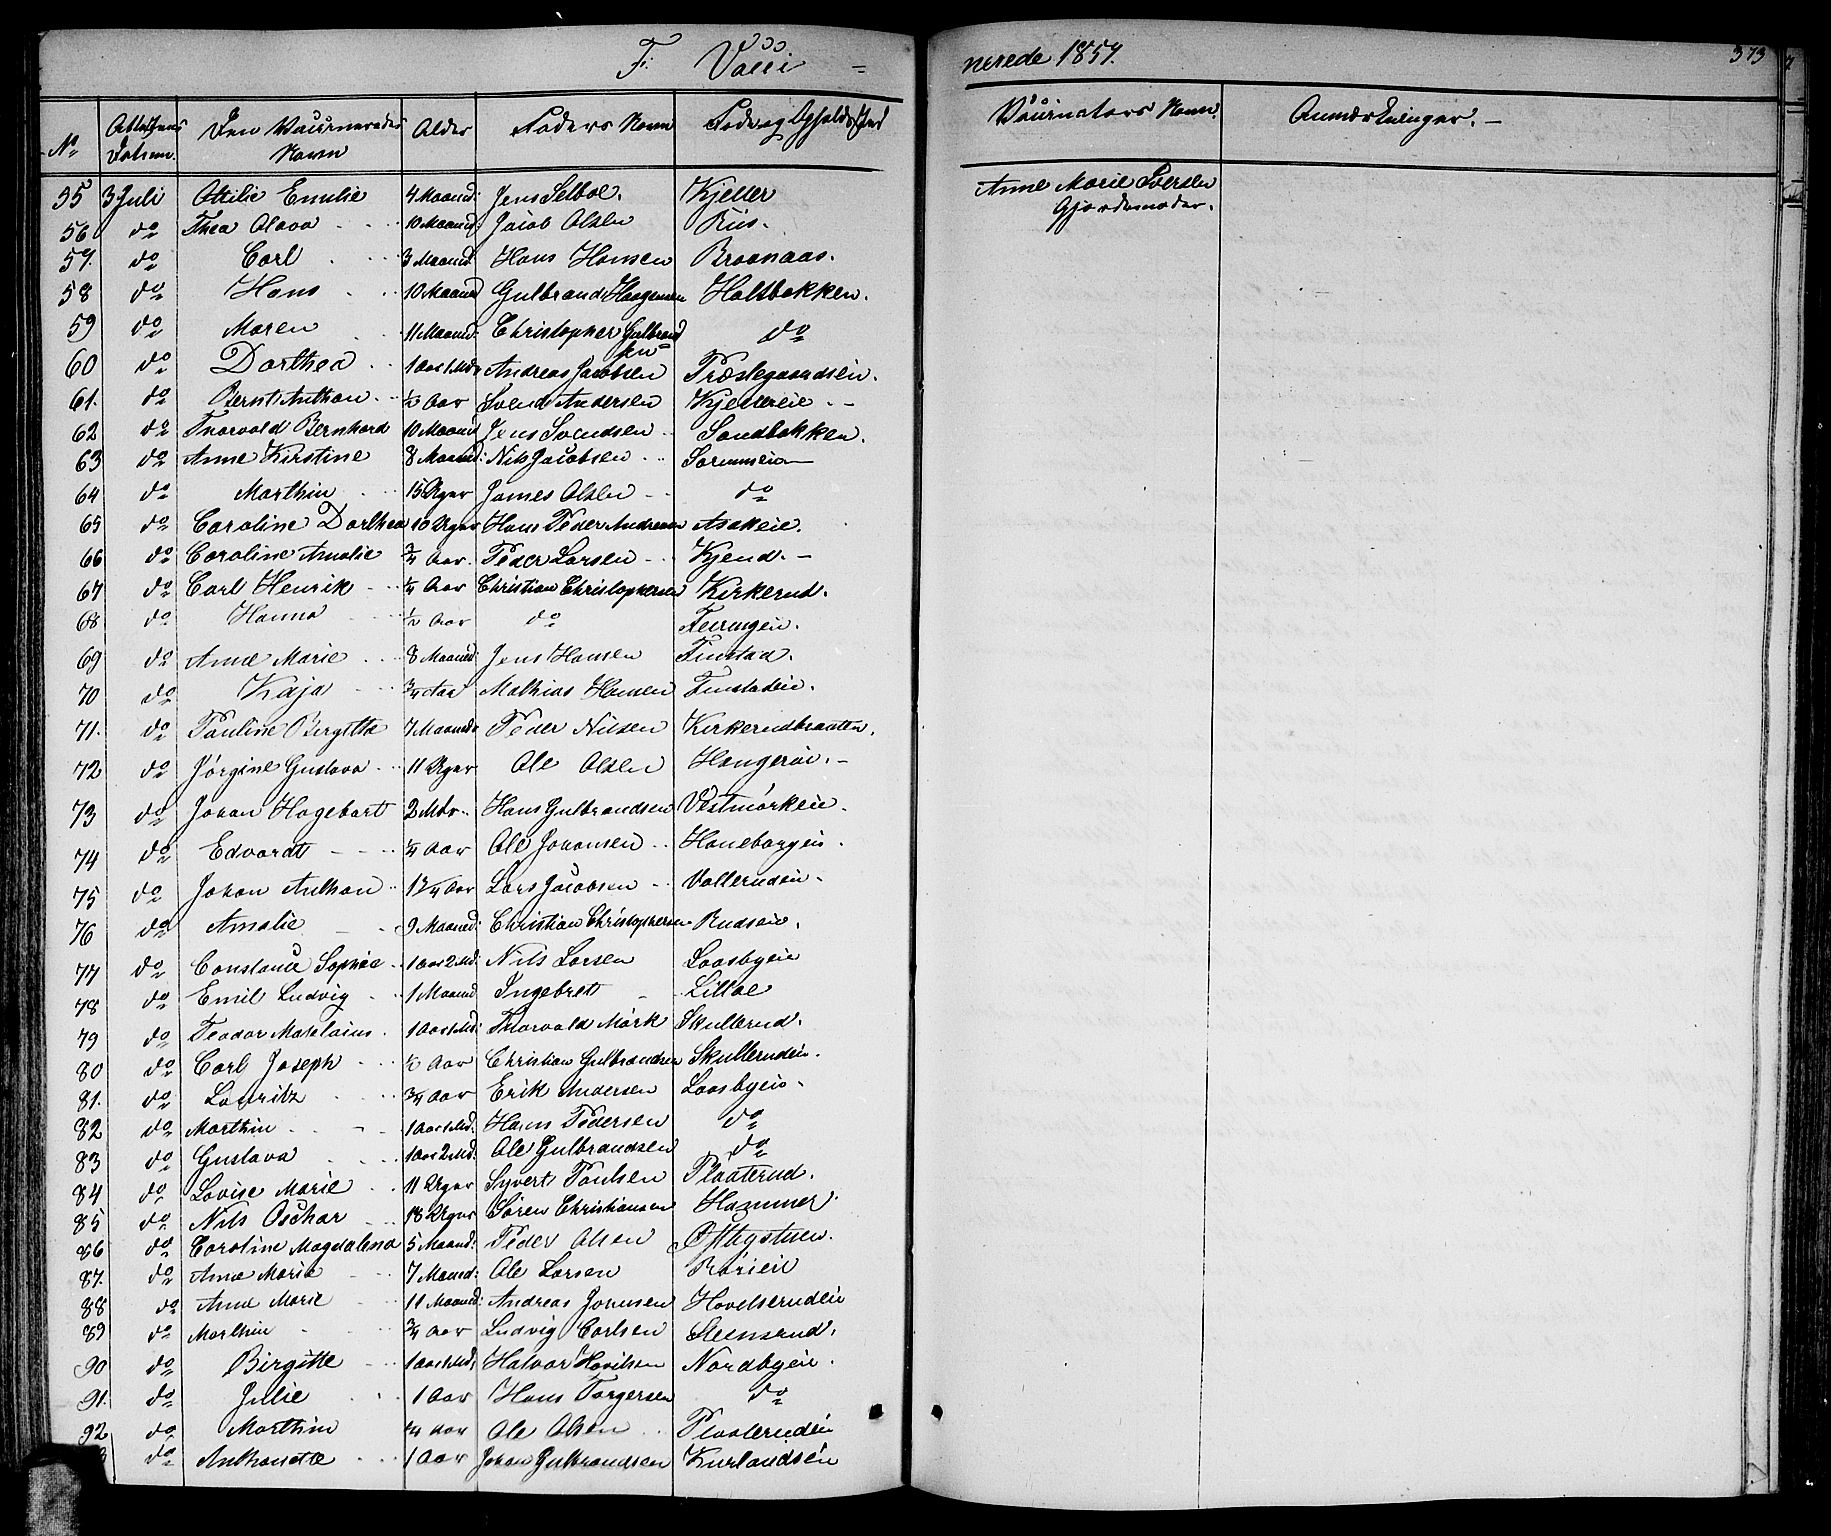 F. Vacci
nerede 1857.
373
No
Attestens Datum.
Den Vaccineredes Navn
Alder
Faders Navn
Føde og Opholdssted
Vaccinators Navn.
Anmærkninger. -
55 3 Juli Ottilie Emilie 4 Maaned: Jens Selboe. Kjeller Anne Marie Iversen
Gjordemoder.
56 do Thea Olava 10 Maaned: Jacob Olsen Riis.
57. do Carl 3 Maaned. Hans Hansen Braanaas.
58 do Hans 10 Maaned Gulbrand Haagensen Holtbakken.
59 do Maren 11 Maaned: Christopher Gulbrand do
sen
60 do Dorthea 1 Aar 1 Md. Andreas Jacobsen Præstegaardseie.
61. do Bernt Anthon. 1/2 Aar Svend Andersen Kjellereie. -
62 do Thorvald Bernhard 10 Maaned Jens Svendsen Sandbakken.
63 do Anne Kirstine 8 Maaned: Nils Jacobsen
64 do Marthin 15 Uger James Olsen do
65 do Caroline Dorthea 10 Uger Hans Peder Andresen Asakeie.
66 do Caroline Amalie 3/4 Aar. Peder Larsen Kjend. -
67 do Carl Henrik 1/4 Aar Christian Christophersen Kirkerud.
68 do Hanna 1/2 Aar do Feiringen.
69 do Anne Marie 8 Maaned: Jens Hansen Finstad.
70 do Kaja 3/4 Aar Mathias Hansen Finstadeie.
71. do Pauline Birgitte 7 Maaned Peder Nilsen Kirkerudbraatten.
72 do Jørgine Gustava 11 Uger Ole Olsen -
73 do Johan Hagebart 2 Mdr. Hans Gulbrandsen Vestmørkeie.
74 do Edvardt 1/4 Aar Ole Johansen Haneborgeie.
75 do Johan Anthon 1 1/4 Aar Lars Jacobsen Vallerudeie.
76 do Amalie 9 Maaned: Christian Christophersen Rudseie.
77 do Constance Sophie 1 Aar 2 Md: Nils Larsen Laasbyeie
78 do Emil Ludvig 1 Maaned Ingebret Lilloe
79 do Teodor 1 Aar 1 Md: Thorvald Mørk Skullerud.
80 do Carl Joseph 1/2 Aar Christian Gulbrandsen Skullerudeie.
81. do Lauritz 3/4 Aar Erik Andersen Laasbyeie.
82 do Marthin 1 Aar 1 Md. Hans Pedersen do
83 do Gustava 1 Aar 2 Md. Ole Gulbrandsen do
84 do Lovise Marie 11 Uger Syvert Paulsen Plaaterud.
85 do Nils Oschar 18 Uger Søren Christiansen Hammer
86 do Caroline Magdalena 5 Maaned: Peder Olsen
87. do Anne Marie 7 Maaned: Ole Larsen
88 do Anne Marie 11 Maaned: Andreas Jonsen Hovelserudeie
89 do Marthin 3/4 Aar Ludvig Carlsen Steensrud.
90 do Birgitte 1 Aar 1 Md. Halvor Havelsen Nordbyeie.
91. do Julie 1 Aar Hans Torgersen do
92 do Marthin 1/4 Aar Ole Olsen Plaaterudeie
3 do Anthonette 1 Aar Johan Gulbrandsen Kurlandseie